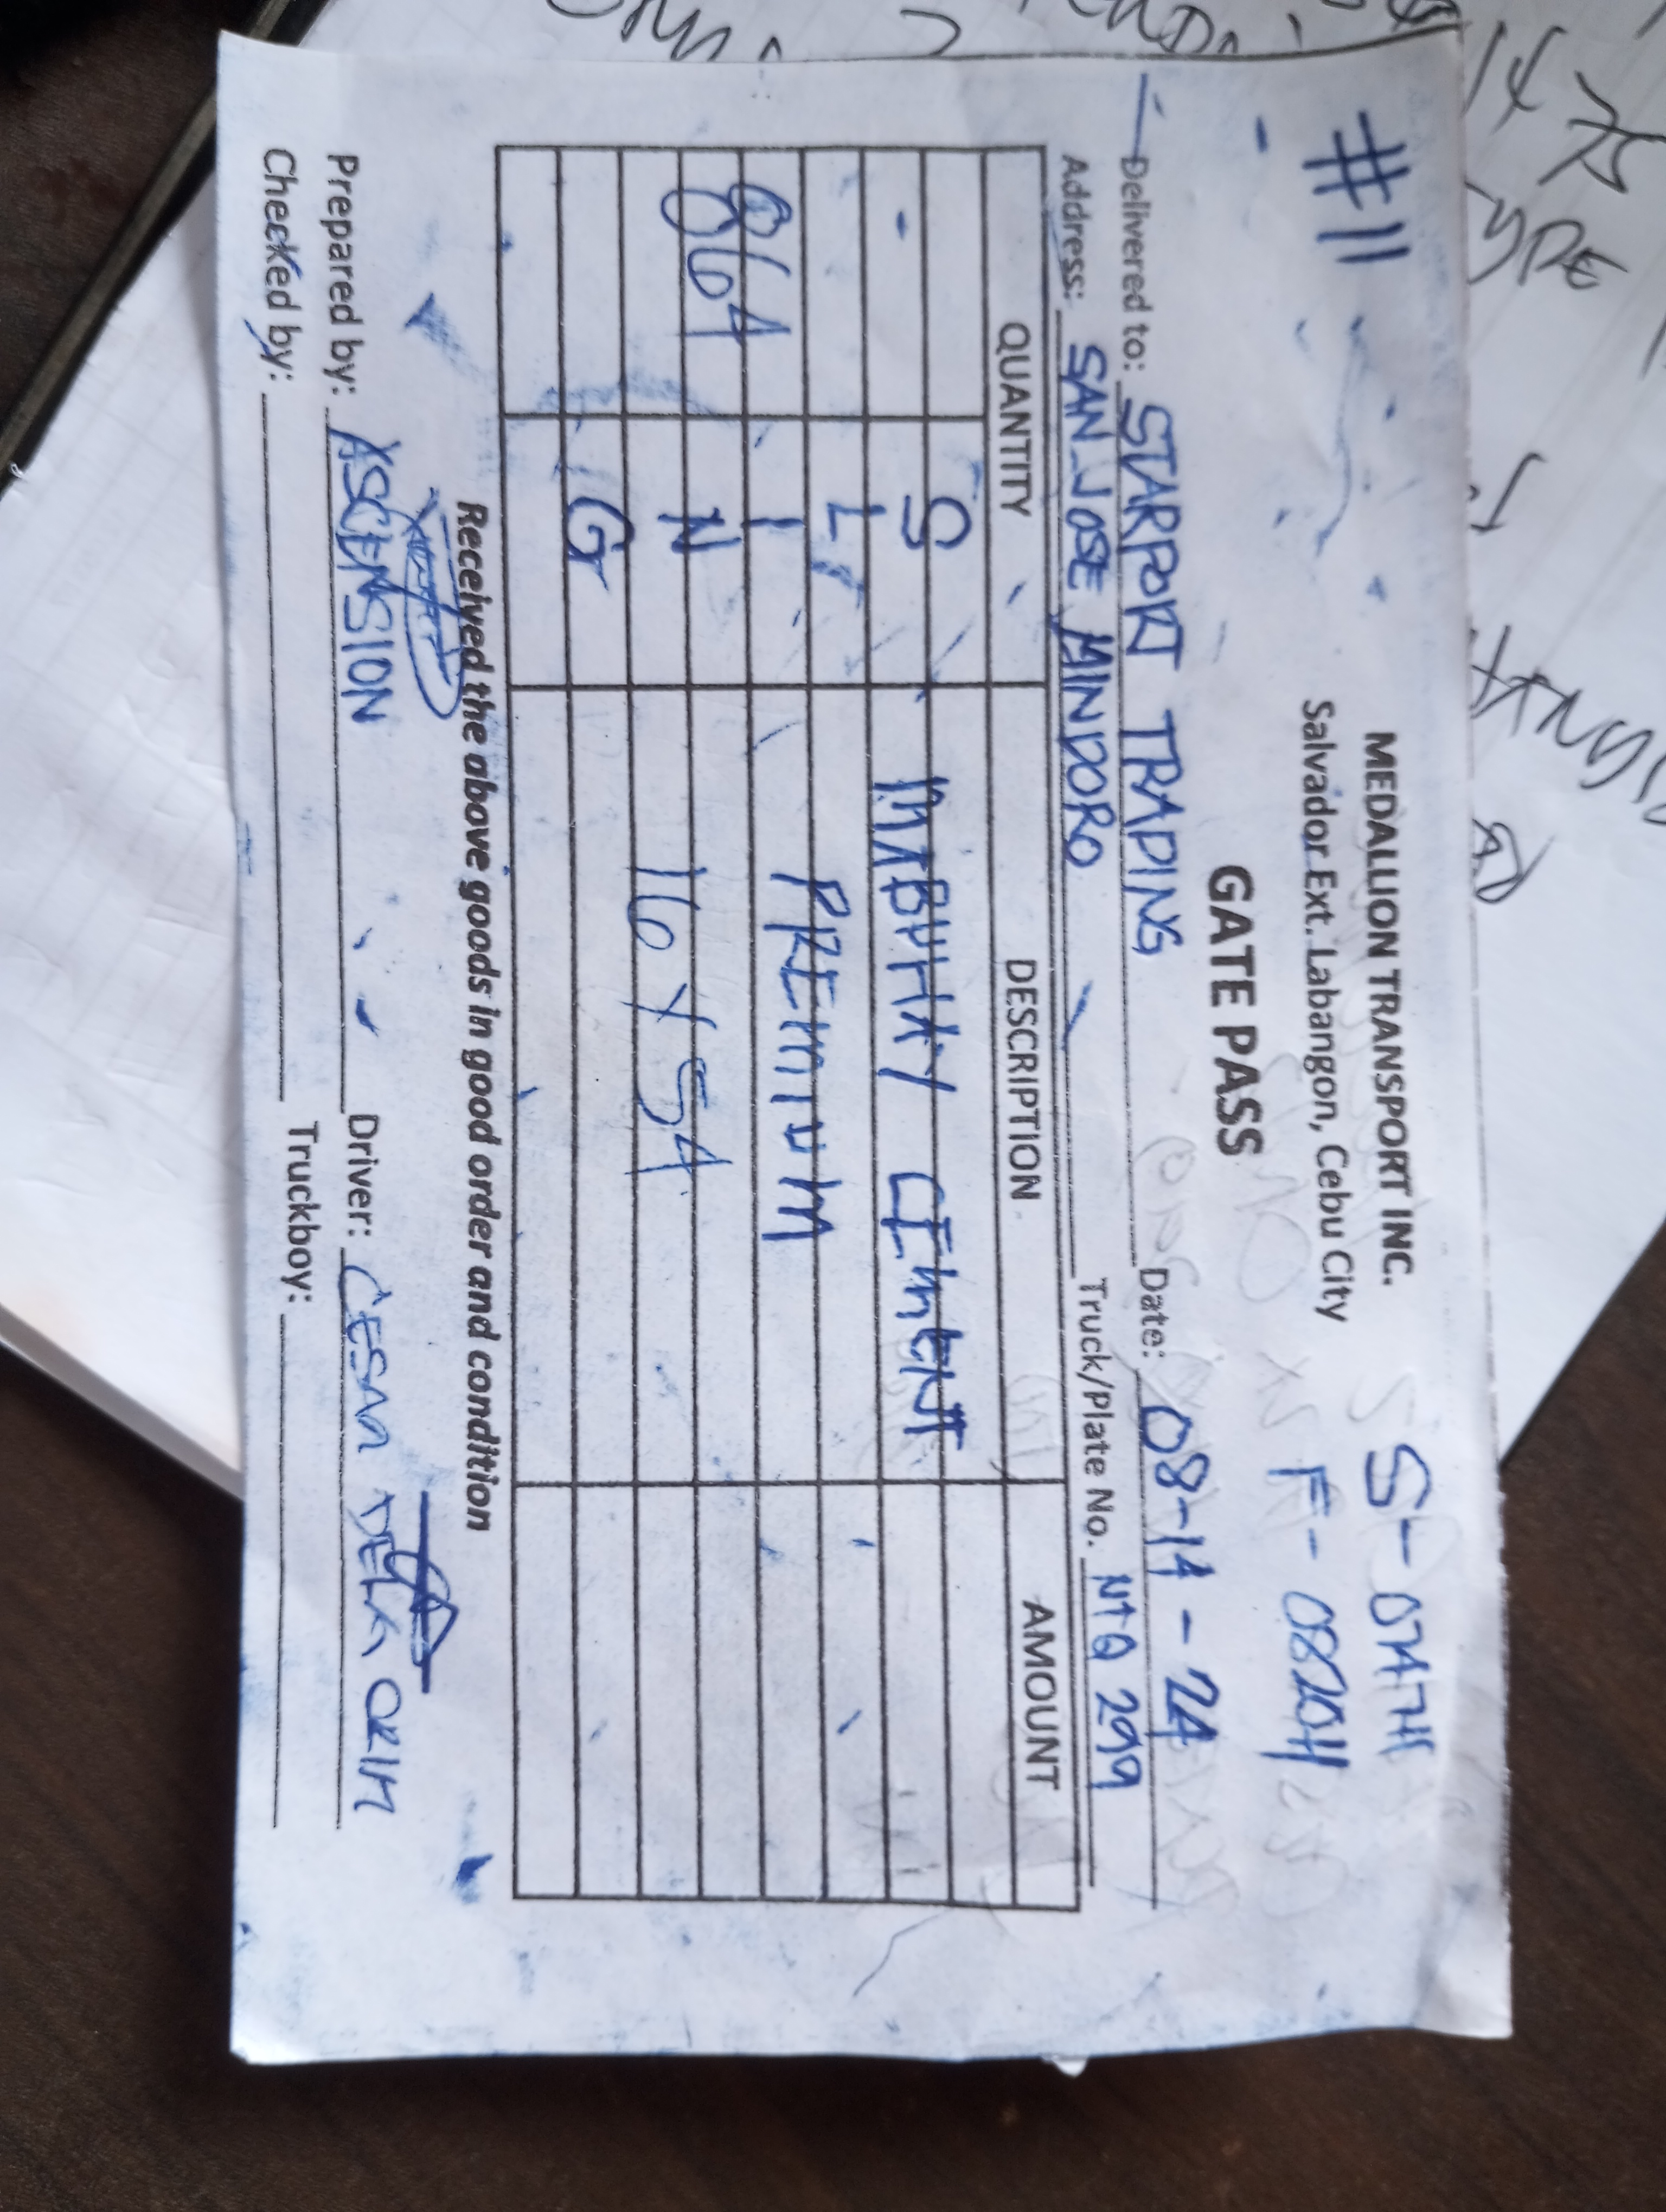 #11
MEDALLION TRANSPORT INC.
Salvador Ext. Labangon, Cebu City
S- 0747H
F- 0820H
GATE PASS
Delivered to: STARPORT TRADING Date: 08-14-24
Address: SAN JOSE MINDORO Truck/Plate No. NTQ 299
QUANTITY DESCRIPTION AMOUNT
S MABUHAY CEMENT
L
864 I PREMIUM
N 16 X 54
G
Received the above goods in good order and condition
Prepared by: ASCENSION Driver: CESAR DELA
Checked by: Truckboy: